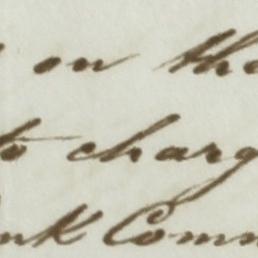 on the
to charg
nk Comm